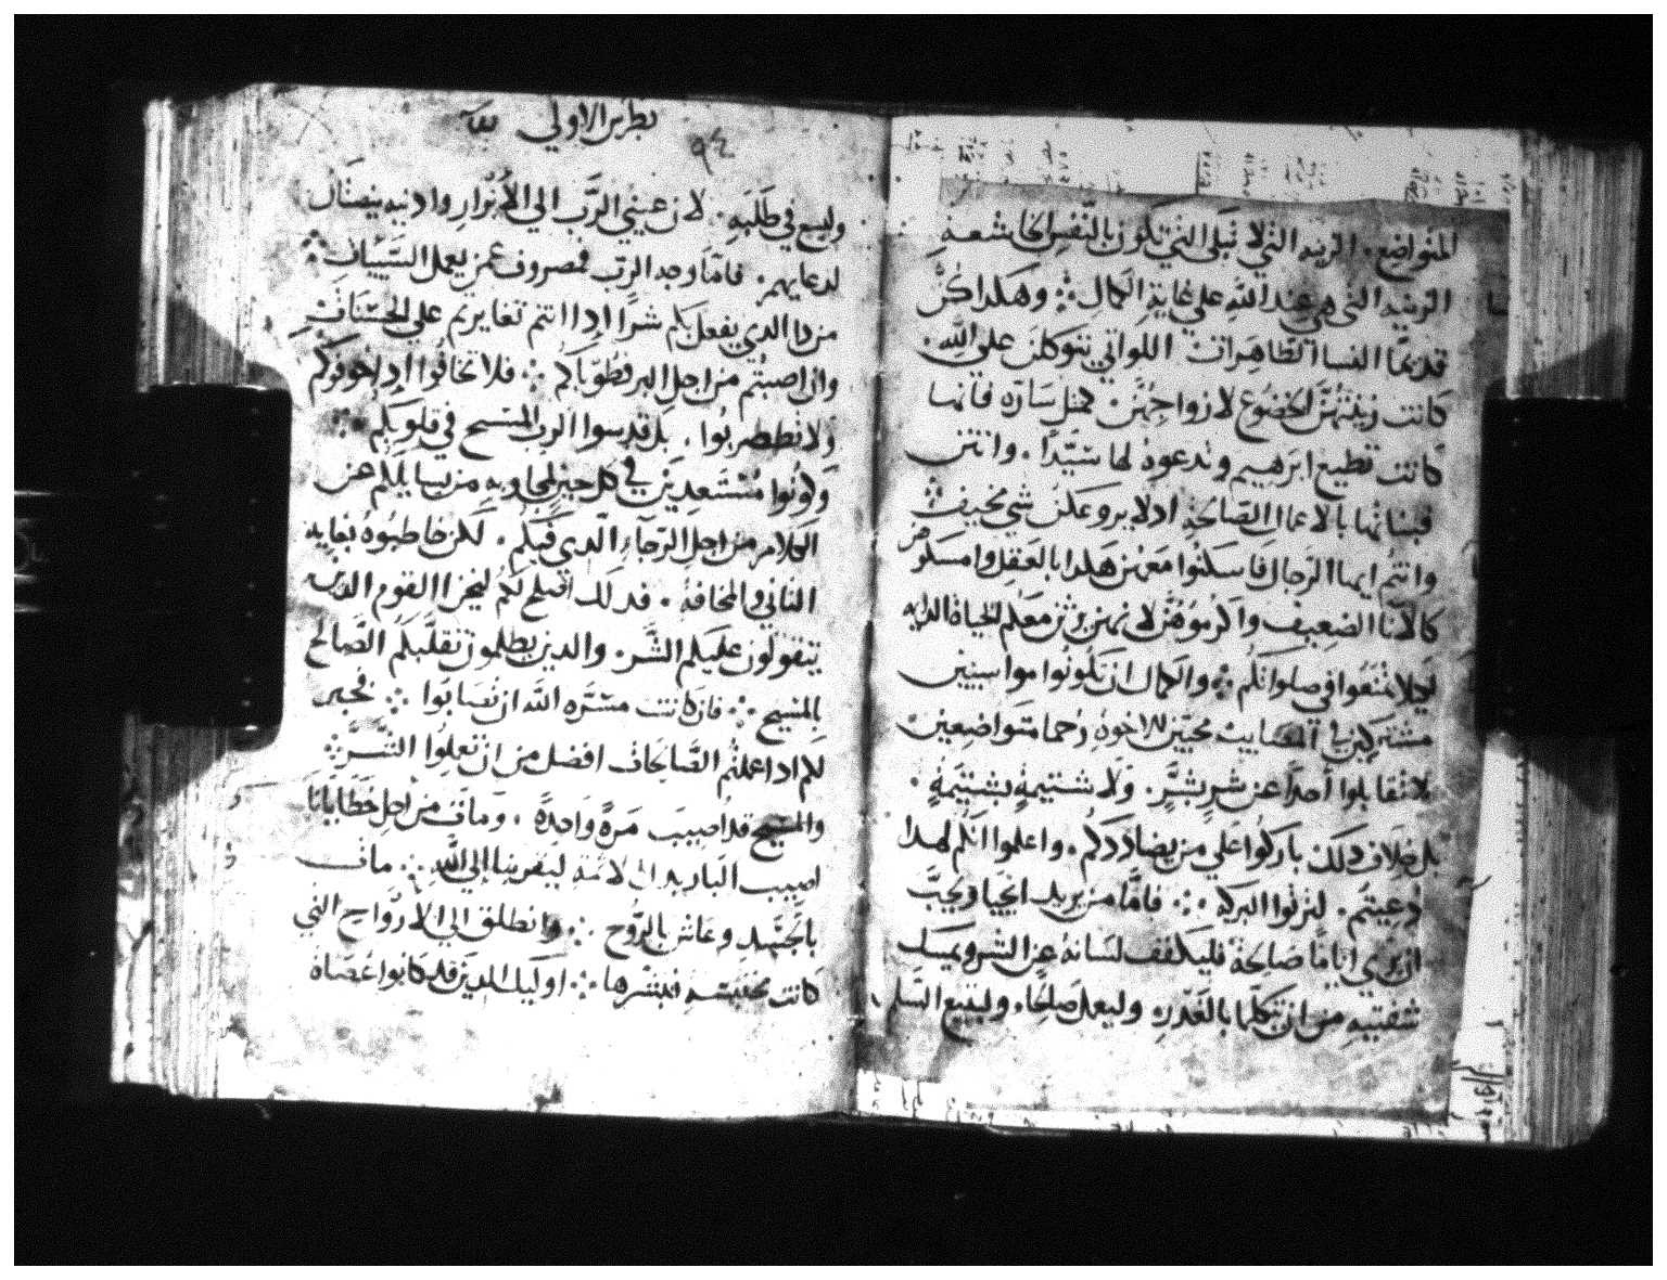 المتواضع. الزينه التي لا تبلى التي تكون بالنفس الخاشعة
الزينه التي هي عند الله علي غاية الكمال ⁘ وهكدا كنّ
قديمًا النسا الطاهرات اللواتي تتوكلن علي الله.
كانت زينتهن الخضوع لازواجهن. كمثل ساره فانها
كانت تطيع ابرهيم وتدعوه لها سيّدًا. وانتن
فبناتها بالاعمال الصالحة اد لا يروعكن شي مخيف ⁘
وانتم ايها الرجال فاسكنوا معهن هكدا بالعقل وامسكوهن
كالآنا الضعيف واكرموهن لانهن يرثن معكم الحياة الدايه
ليلا تمنعوا في صلواتكم ⁘ والكمال ان تكونوا مواسيين
مشتركين في المصايب محبّين للاخوة رُحما متواضعين
لا تقابلوا أحدًا عن شرٍ بشرٍّ. ولا شتيمةٍ بشتيمةٍ.
بل خلاف دلك باركوا علي من يضاددكم. واعلموا انكم لهدا
دُعيتم. لترثوا البركه ⁘ فامّا من يريد ان يحيا ويحبّ
ان يري ايامًا صالحة فليكفف لسانه عن الشر ويمسك
شفتيه من ان تتكلما بالغدر. وليعمل صالحًا. وليتبع السلم
بطرس الاولي
٩٤
وليسع في طلبه. لان عيني الرَّب الي الأبرار وادنيه ينصتان
لدعايهم. فامّا وجه الرب فمصروف عمن يعمل السيّيات ⁘
من دا الدي يفعل بكم شرًا ادا انتم تغايرتم علي الحسنات
وان اصبتم من اجل البر فطوباكم ⁘ فلا تخافوا اد اخوفوكم
ولا تضطربوا. بل قدسوا الرب المسيح في قلوبكم ⁘
وكونوا مستعدين في كل حين لمجاوبه من يسايلكم عن
الكلام من اجل الرجآ الّدي فيكم. لكن خاطبوه بغايه
التاني والمخافة. فدلك افلح لكم ليخزا القوم الدين
يتقولون عليكم الشَّر. والدين يظلمون تقلّبكم الصّالح
بالمسيح ⁘ فان كانت مسّره الله ان تصابوا ⁘ فخير
لكم ادا عملتم الصَّالحات افضل من ان تعملوا الشَّرَّ ⁘
والمسيح قد اصيب مرةً واحدةً. ومات من أجل خطايانا
اصيب البار بدل الاثمة ليقربنا إلى اللهِ ⁘ مات
بالجسد وعاش بالرّوح ⁘ وانطلق الي الارواح التي
كانت محتبسه فبشرها ⁘ اوليك الدين قد كانوا عصاة